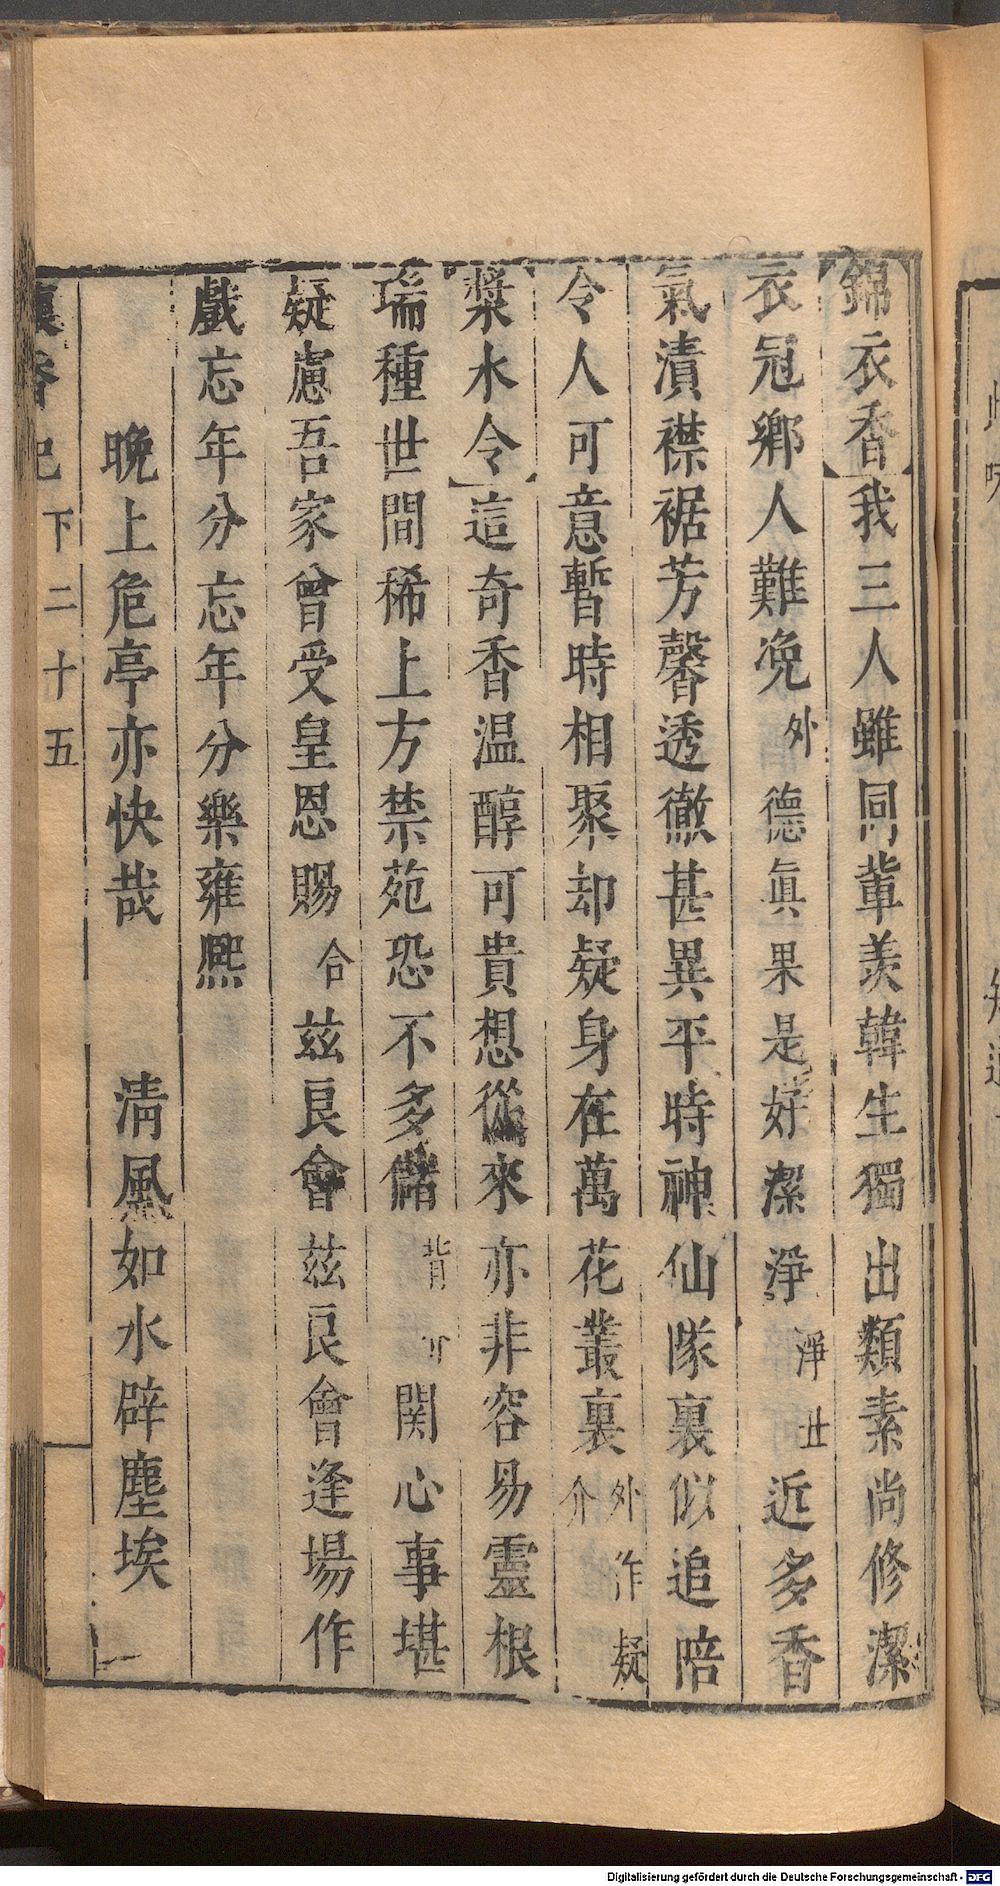 【錦衣香】我三人雖同輩羡韓生獨出類素尚修潔
衣冠鄉人難凂外德眞果是好潔淨淨丑近多香
氣漬襟裾芳馨透徹甚異平時神仙隊裏似追陪
令人可意暫時相聚却疑身在萬花叢裏外作疑介
【漿水令】這奇香温醇可貴想從來亦非容易靈根
瑞種世間稀上方禁苑恐不多儲背介関心事堪
疑慮吾家曾受皇恩賜合兹良會兹良會逢場作
戲忘年分忘年分樂雍熙
晚上危亭亦快哉　清風如水辟塵埃
懷香記下二十五
Digitalisierung gefördert durch die Deutsche Forschungsgemeinschaft - DFG